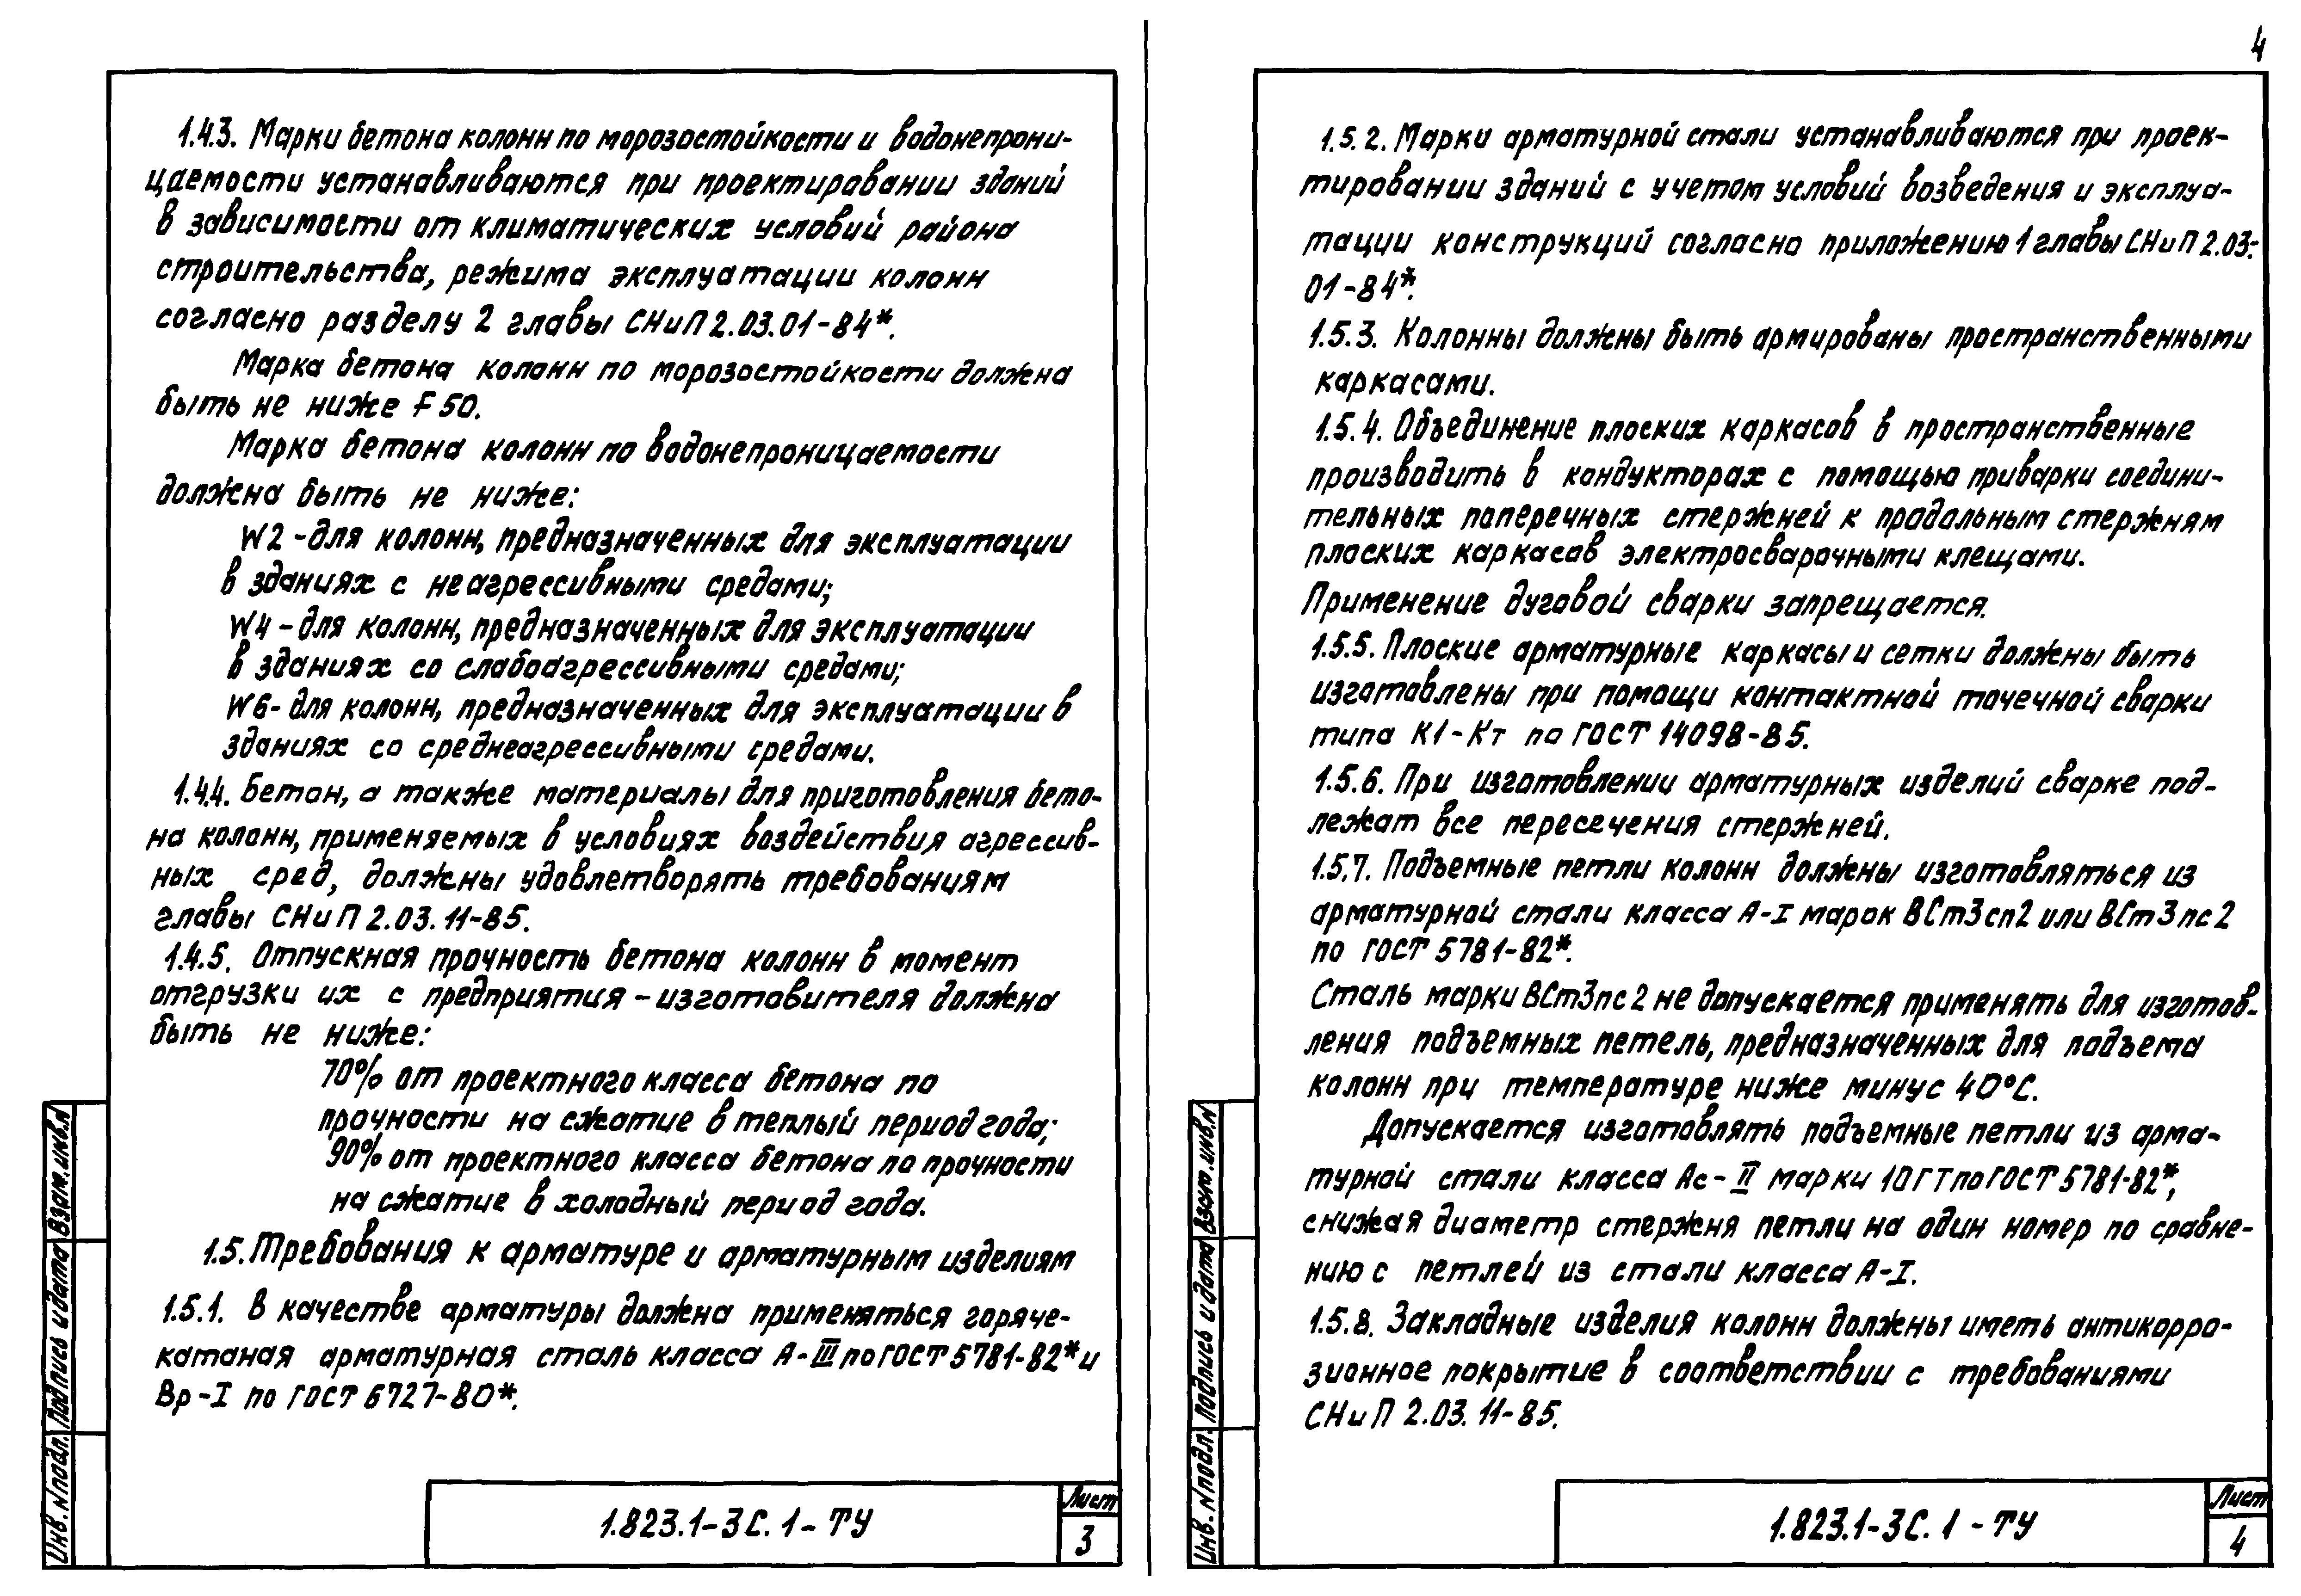 1.4.3. Марки бетона колонн по морозостойкости и водонепрони-
цаемости устанавливаются при проектировании зданий
в зависимости от климатических условий района
строительства, режима эксплуатации колонн
согласно разделу 2 главы СНиП 2.03.01-84*.
Марка бетона колонн по морозостойкости должна
быть не ниже F50.
Марка бетона колонн по водонепроницаемости
должна быть не ниже:
W2 - для колонн, предназначенных для эксплуатации
в зданиях с неагрессивными средами;
W4 - для колонн, предназначенных для эксплуатации
в зданиях со слабоагрессивными средами;
W6 - для колонн, предназначенных для эксплуатации в
зданиях со среднеагрессивными средами.
1.4.4. Бетон, а также материалы для приготовления бето-
на колонн, применяемых в условиях воздействия агрессив-
ных сред, должны удовлетворять требованиям
главы СНиП 2.03.11-85.
1.4.5. Отпускная прочность бетона колонн в момент
отгрузки их с предприятия - изготовителя должна
быть не ниже:
70% от проектного класса бетона по
прочности на сжатие в теплый период года;
90% от проектного класса бетона по прочности
на сжатие в холодный период года.
1.5. Требования к арматуре и арматурным изделиям
1.5.1. В качестве арматуры должна применяться горяче-
катаная арматурная сталь класса А-III по ГОСТ 5781-82* и
Вр-I по ГОСТ 6727-80*.
Инв. N подл. Подпись и дата Взам. инв. N
1.823.1-3С.1-ТУ
Лист
3
4
1.5.2. Марки арматурной стали устанавливаются при проек-
тировании зданий с учетом условий возведения и эксплуа-
тации конструкций согласно приложению 1 главы СНиП 2.03.
01-84*.
1.5.3. Колонны должны быть армированы пространственными
каркасами.
1.5.4. Объединение плоских каркасов в пространственные
производить в кондукторах с помощью приварки соедини-
тельных поперечных стержней к продольным стержням
плоских каркасов электросварочными клещами.
Применение дуговой сварки запрещается.
1.5.5. Плоские арматурные каркасы и сетки должны быть
изготовлены при помощи контактной точечной сварки
типа К1-Кт по ГОСТ 14098-85.
1.5.6. При изготовлении арматурных изделий сварке под-
лежат все пересечения стержней.
1.5.7. Подъемные петли колонн должны изготовляться из
арматурной стали класса А-I марок ВСт3сп2 или ВСт3пс2
по ГОСТ 5781-82*.
Сталь марки ВСт3пс2 не допускается применять для изготов-
ления подъемных петель, предназначенных для подъема
колонн при температуре ниже минус 40°С.
Допускается изготовлять подъемные петли из арма-
турной стали класса Ас-II марки 10ГТ по ГОСТ 5781-82*,
снижая диаметр стержня петли на один номер по сравне-
нию с петлей из стали класса А-I.
1.5.8. Закладные изделия колонн должны иметь антикорро-
зионное покрытие в соответствии с требованиями
СНиП 2.03.11-85.
Инв. N подл. Подпись и дата Взам. инв. N
1.823.1-3С.1-ТУ
Лист
4